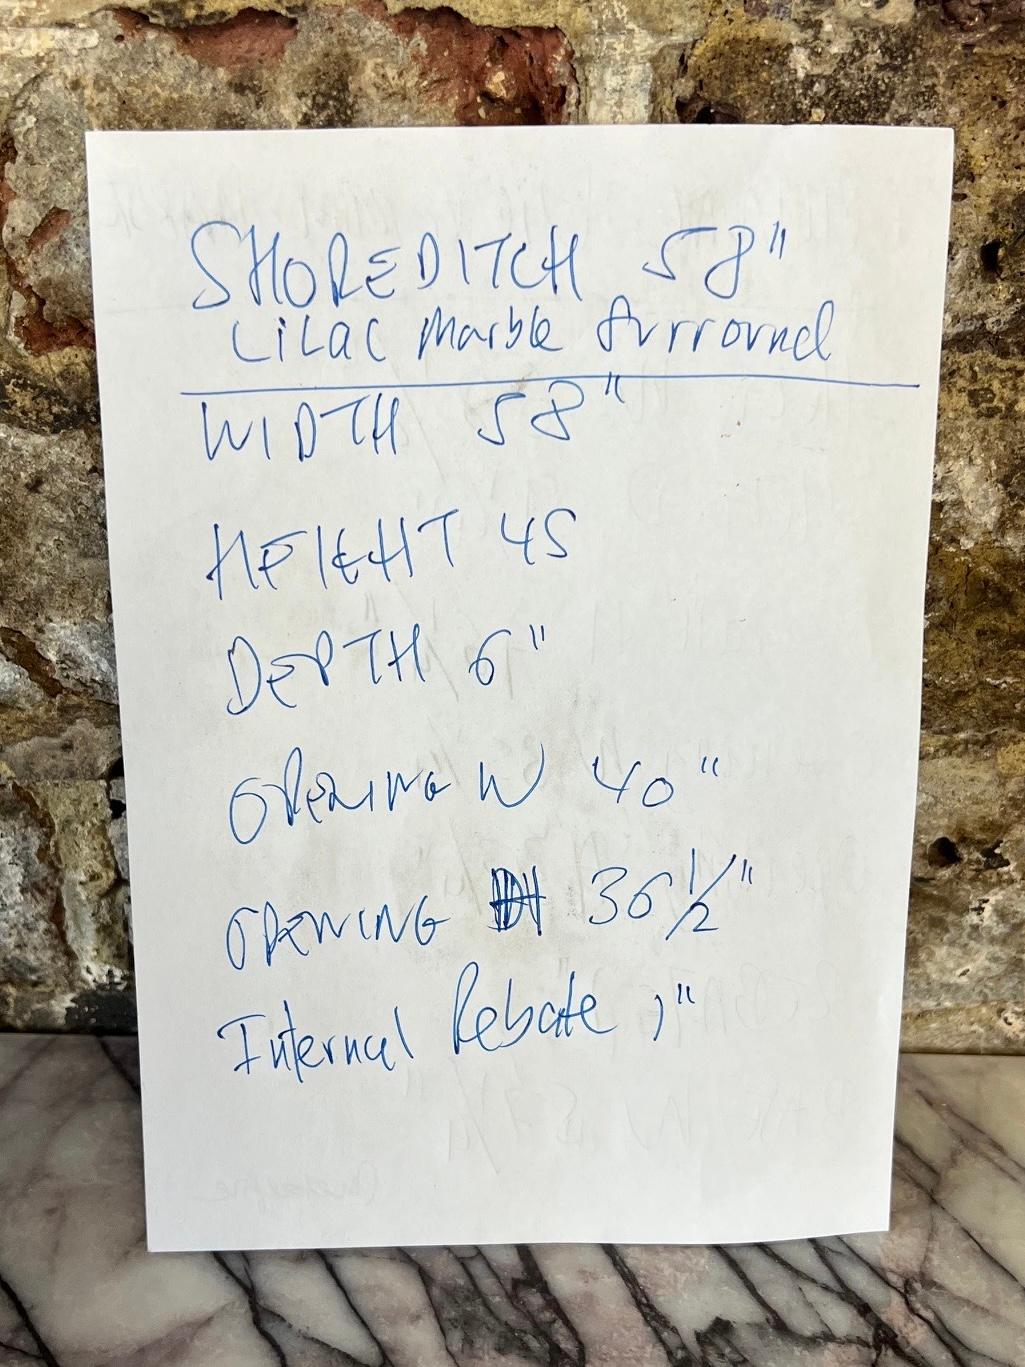 SHOREDITCH 58"
Lilac Marble Surround
WIDTH 58"
HEIGHT 45
DEPTH 6"
OPENING W 40"
OPENING H 36 1/2"
Internal Rebate 1"